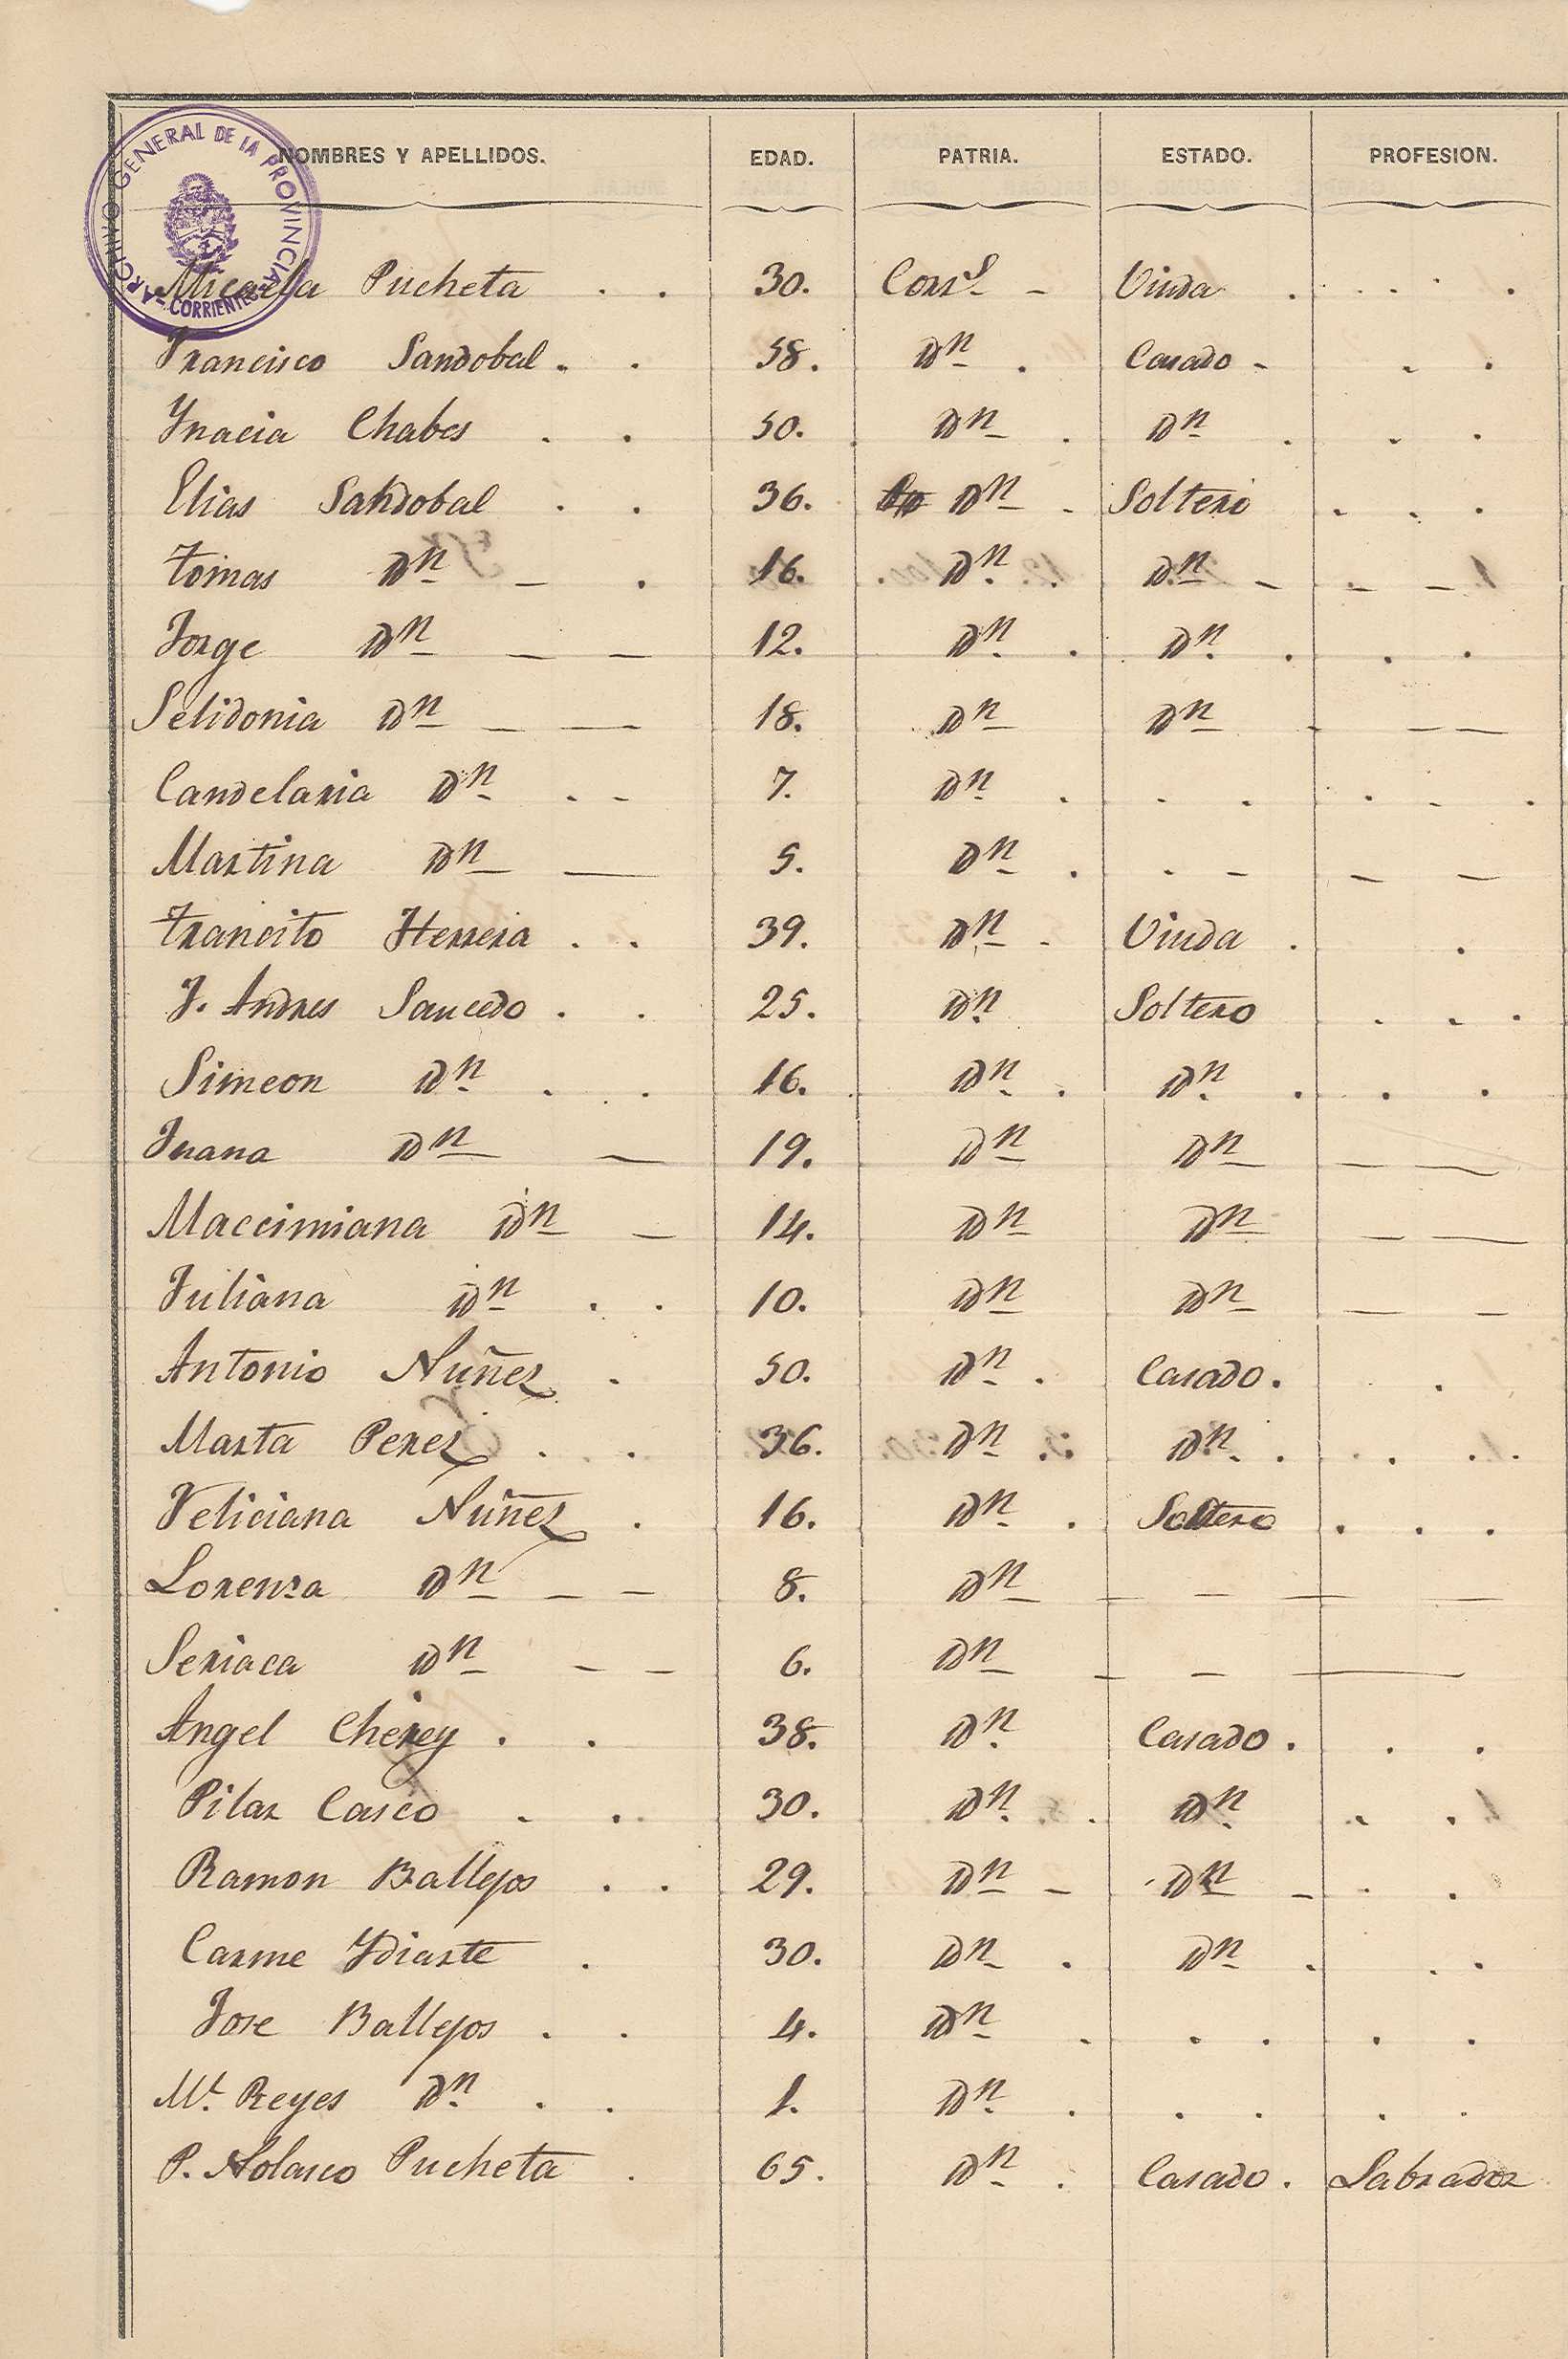 ARCHIVO GENERAL DE LA PROVINCIA - CORRIENTES -
NOMBRES Y APELLIDOS. EDAD. PATRIA. ESTADO. PROFESION.
Micaela Pucheta . . 30. Corrs. - Viuda . . . . .
Francisco Sandobal . . 58. Dn . Casado - . .
Ynacia Chabes . . 50. Dn . Dn . . .
Elias Sandobal . . 36. Dn - Soltero . . .
Tomas Dn - . 16. Dn . Dn - - -
Jorge Dn - - 12. Dn . Dn . . .
Selidonia Dn - - 18. Dn Dn - - -
Candelaria Dn . - 7. Dn . . . . - .
Martina Dn - 5. Dn . . - - -
Trancito Herrera . . 39. Dn - Viuda . .
J. Andres Saucedo . . 25. Dn Soltero . . .
Simeon Dn . . 16. Dn . Dn . . .
Juana Dn - 19. Dn Dn - -
Maccimiana Dn - 14. Dn Dn - -
Juliana Dn . . 10. Dn Dn - -
Antonio Nuñez . 50. Dn . Casado . .
Marta Perez . . 36. Dn . Dn . . . .
Feliciana Nuñez . 16. Dn . Soltero . . .
Lorenza Dn - - 8. Dn - - - -
Seriaca Dn - - 6. Dn - - -
Angel Cherey . . 38. Dn Casado . . .
Pilar Casco . . 30. Dn . Dn . .
Ramon Ballejos . . 29. Dn - Dn - . .
Carme Ydiarte . 30. Dn . Dn . . .
Jose Ballejos . . 4. Dn . . . . .
Ma. Reyes Dn . . 1. Dn . . . . .
P. Nolasco Pucheta . 65. Dn . Casado . Labrador